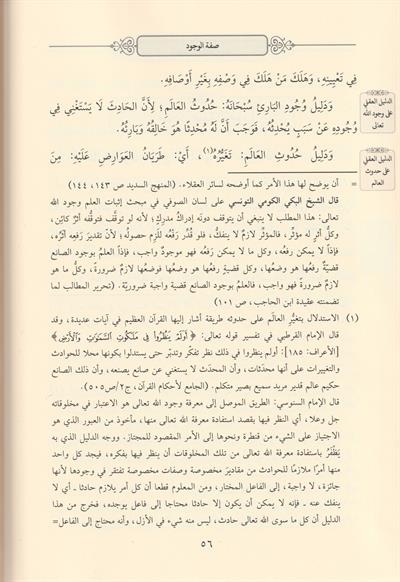 صفة الوجود
فِي تَعْيِينِهِ، وَهَلَكَ مَنْ هَلَكَ فِي وَصْفِهِ بِغَيْرِ أَوْصَافِهِ.
الدليل العقلي
على وجود الله
تعالى
وَدَلِيلُ وُجُودِ البَارِئِ سُبْحَانَهُ: حُدُوثُ العَالَمِ؛ لِأَنَّ الحَادِثَ لَا يَسْتَغْنِي فِي
وُجُودِهِ عَنْ سَبَبٍ يُحْدِثُهُ، فَوَجَبَ أَنَّ لَهُ مُحْدِثًا هُوَ خَالِقُهُ وَبَارِئُهُ.
الدليل العقلي
على حدوث
العالم
وَدَلِيلُ حُدُوثِ العَالَمِ: تَغَيُّرُهُ(١)، أَيْ: طَرَيَانُ العَوَارِضِ عَلَيْهِ: مِنَ
= أن يوضح لها هذا الأمر كما أوضحه لسائر العقلاء. (المنهج السديد ص ١٤٣، ١٤٤)
قال الشيخ البكي الكومي التونسي على لسان الصوفي في مبحث إثبات العلم بوجود الله
تعالى: هذا المطلب لا ينبغي أن يتوقف دونه إدراكُ مُدرِكٍ؛ لأنه لو توقَّف فتوقُّفه أثرٌ كائِن،
وكلُّ أثرٍ له مؤثر، فالمؤثّر لازمٌ لا ينفكُّ، فلو قُدِّر رَفْعُه للَزِم حصولُه؛ لأنّ تقديرَ رَفعِه أثرُه،
فإذاً لا يمكن رفعُه، وكل ما لا يمكن رَفعُه فهو موجودٌ واجب، فإذاً العلمُ بوجود الصانع
قضيّةٌ رفعُها هو وضعُها، وكل قضيةٍ رفعُها هو وضعُها فوضعُها لازمٌ ضرورةً، وكلُّ ما هو
لازمٌ ضرورةً فهو واجب، فالعلمُ بوجود الصانع قضية واجبة ضروريّة. (تحرير المطالب لما
تضمنته عقيدة ابن الحاجب، ص ١٠١)
(١) الاستدلال بتغيُّر العالَم على حدوثه طريقة أشار إليها القرآن العظيم في آيات عديدة، وقد
قال الإمام القرطبي في تفسير قوله تعالى: ﴿أَوَلَمْ يَنظُرُوا۟ فِى مَلَكُوتِ ٱلسَّمَٰوَٰتِ وَٱلْأَرْضِ﴾
[الأعراف: ١٨٥]: أولم ينظروا في ذلك نظر تفكّر وتدبّر حتى يستدلوا بكونها محلا للحوادث
والتغييرات على أنها محدَثات، وأن المحدَث لا يستغني عن صانع يصنعه، وأن ذلك الصانع
حكيم عالم قدير مريد سميع بصير متكلم. (الجامع لأحكام القرآن، ج٢/ص٥٠٥)
قال الإمام السنوسي: الطريق الموصل إلى معرفة وجود الله تعالى هو الاعتبار في مخلوقاته
جل وعلا، أي النظر فيها بقصد استفادة معرفة الله تعالى منها، مأخوذ من العبور الذي هو
الاجتياز على الشيء من قنطرة ونحوها إلى الأمر المقصود للمجتاز. ووجه الدليل الذي به
يَظْفَرُ باستفادة معرفة الله تعالى من تلك المخلوقات أن ينظر فيها بفكره، فيجد كل واحد
منها أمرًا ملازمًا للحوادث من مقاديرَ مخصوصة وصفات مخصوصة تفتقر في وجودها لأنها
جائزة، لا واجبة، إلى الفاعل المختار، ومن المعلوم قطعا أن كل أمر يلازم حادثا ـ أي لا
ينفك عنه ـ فإنه لا يمكن أن يكون إلا حادثا محتاجا إلى فاعل يوجده، فخرج من هذا
الدليل أن كل ما سوى الله تعالى حادث، ليس منه شيء في الأزل، وأنه محتاج إلى الفاعل=
٥٦